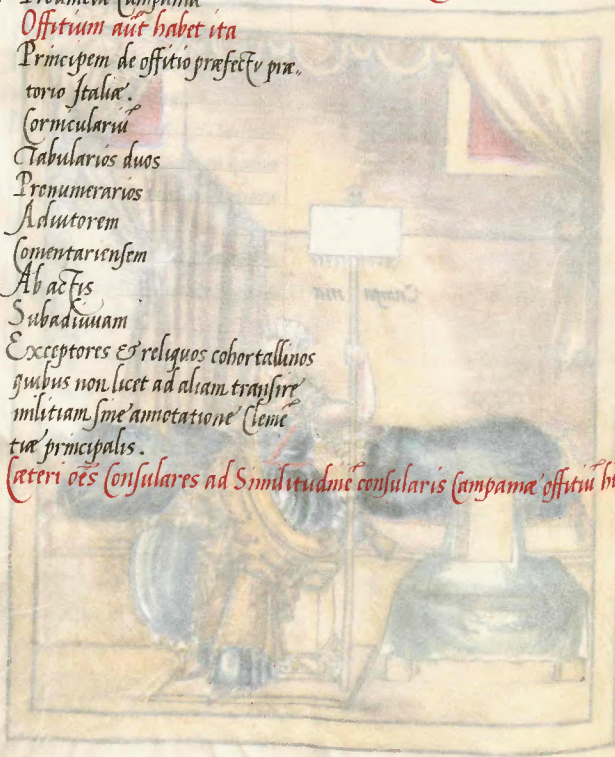 Prouincia Campania
Offitium aūt habet ita
Principem de offitio præfectu præ-
torio Italiæ.
Corniculariū
Tabularios duos
Pronumerarios
Adiutorem
Comentariensem
Ab actis
Subadiuuam
Exceptores & reliquos cohortallinos
quibus non licet ad aliam transire
militiam sine annotatione Cleme͞
tiæ principalis.
Cæteri oēs Consulares ad Similitudinē consularis Campaniæ offitiū